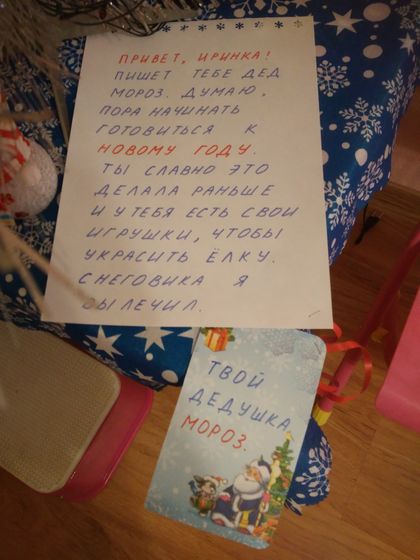 ПРИВЕТ, ИРИНКА!
ПИШЕТ ТЕБЕ ДЕД
МОРОЗ. ДУМАЮ,
ПОРА НАЧИНАТЬ
ГОТОВИТЬСЯ К
НОВОМУ ГОДУ.
ТЫ СЛАВНО ЭТО
ДЕЛАЛА РАНЬШЕ
И У ТЕБЯ ЕСТЬ СВОИ
ИГРУШКИ, ЧТОБЫ
УКРАСИТЬ ЁЛКУ.
СНЕГОВИКА Я
ВЫЛЕЧИЛ.
ТВОЙ
ДЕДУШКА
МОРОЗ.